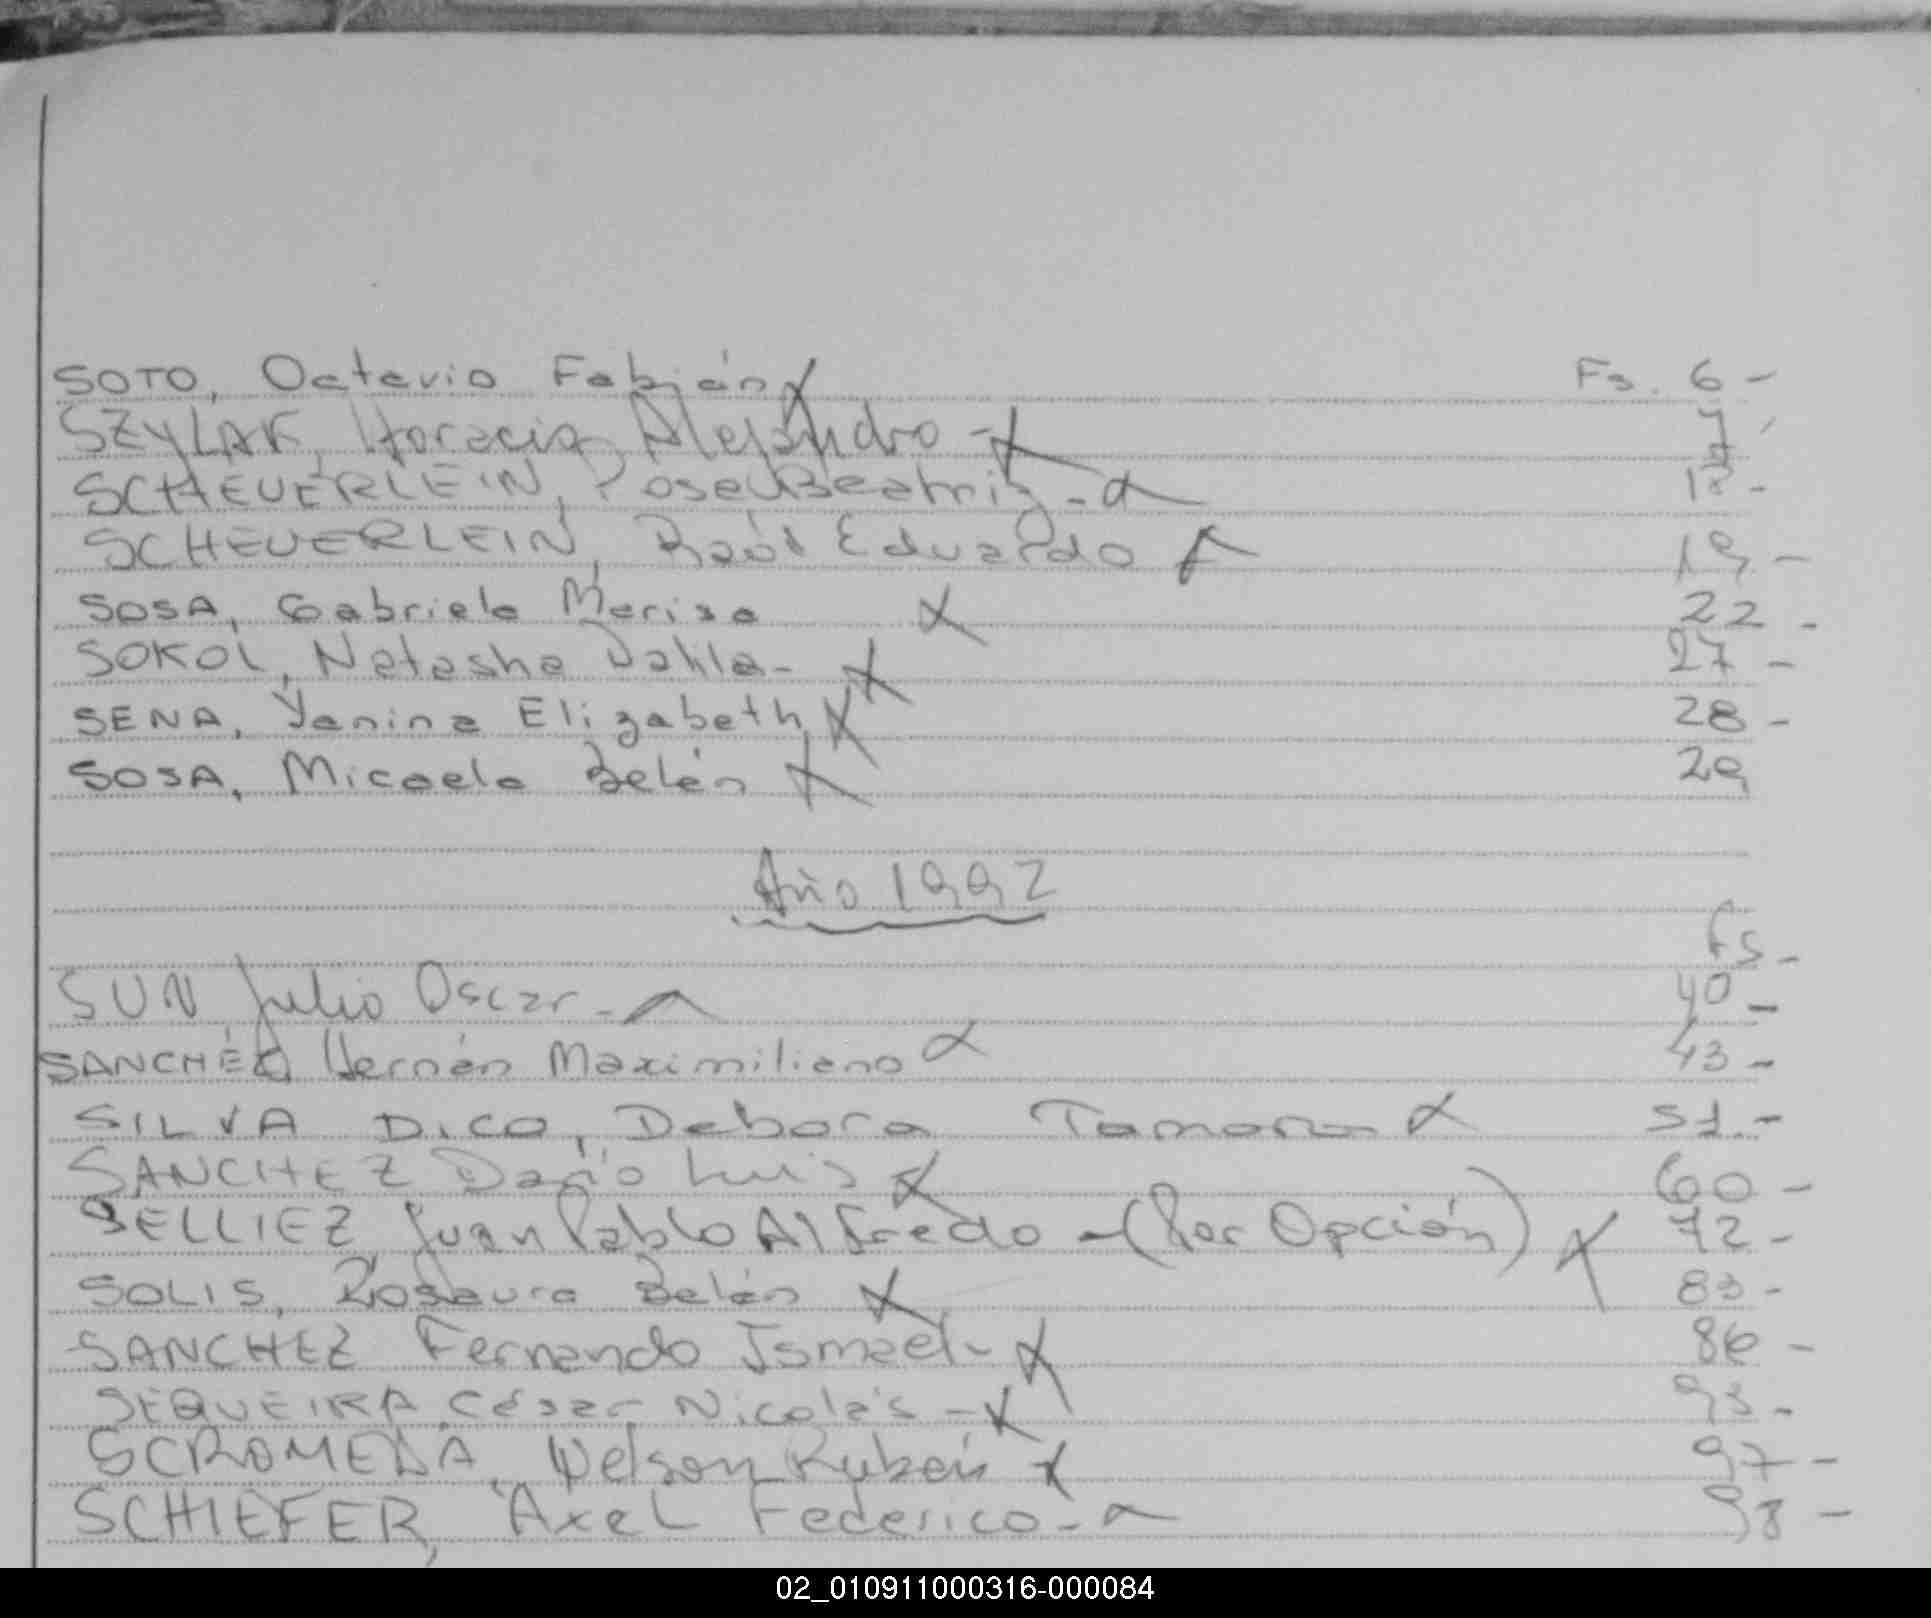 SOTO, Octavio Fabián Fs. 6 -
SZYLAK, Horacio Alejandro - 7
SCHEUERLEIN, Rosa Beatriz - 18 -
SCHEUERLEIN, Raúl Eduardo 19 -
SOSA, Gabriela Marisa 22 -
SOKOL, Natasha Dahla - 27 -
SENA, Yanina Elizabeth 28 -
SOSA, Micaela Belén 29
Año 1992
Fs -
SUN Julio Oscar - 40 -
SANCHÉZ Hernán Maximiliano 43 -
SILVA DICO, Debora Tamara 51 -
SANCHEZ Darío Luis 60 -
SELLIEZ, Juan Pablo Alfredo - (Por Opción) 72 -
SOLIS, Rosaura Belén 83 -
SANCHEZ Fernando Ismael - 86 -
SEQUEIRA, César Nicolás - 93 -
SCROMEDA, Nelson Rubén 97 -
SCHIEFER, Axel Federico - 98 -
02_010911000316-000084